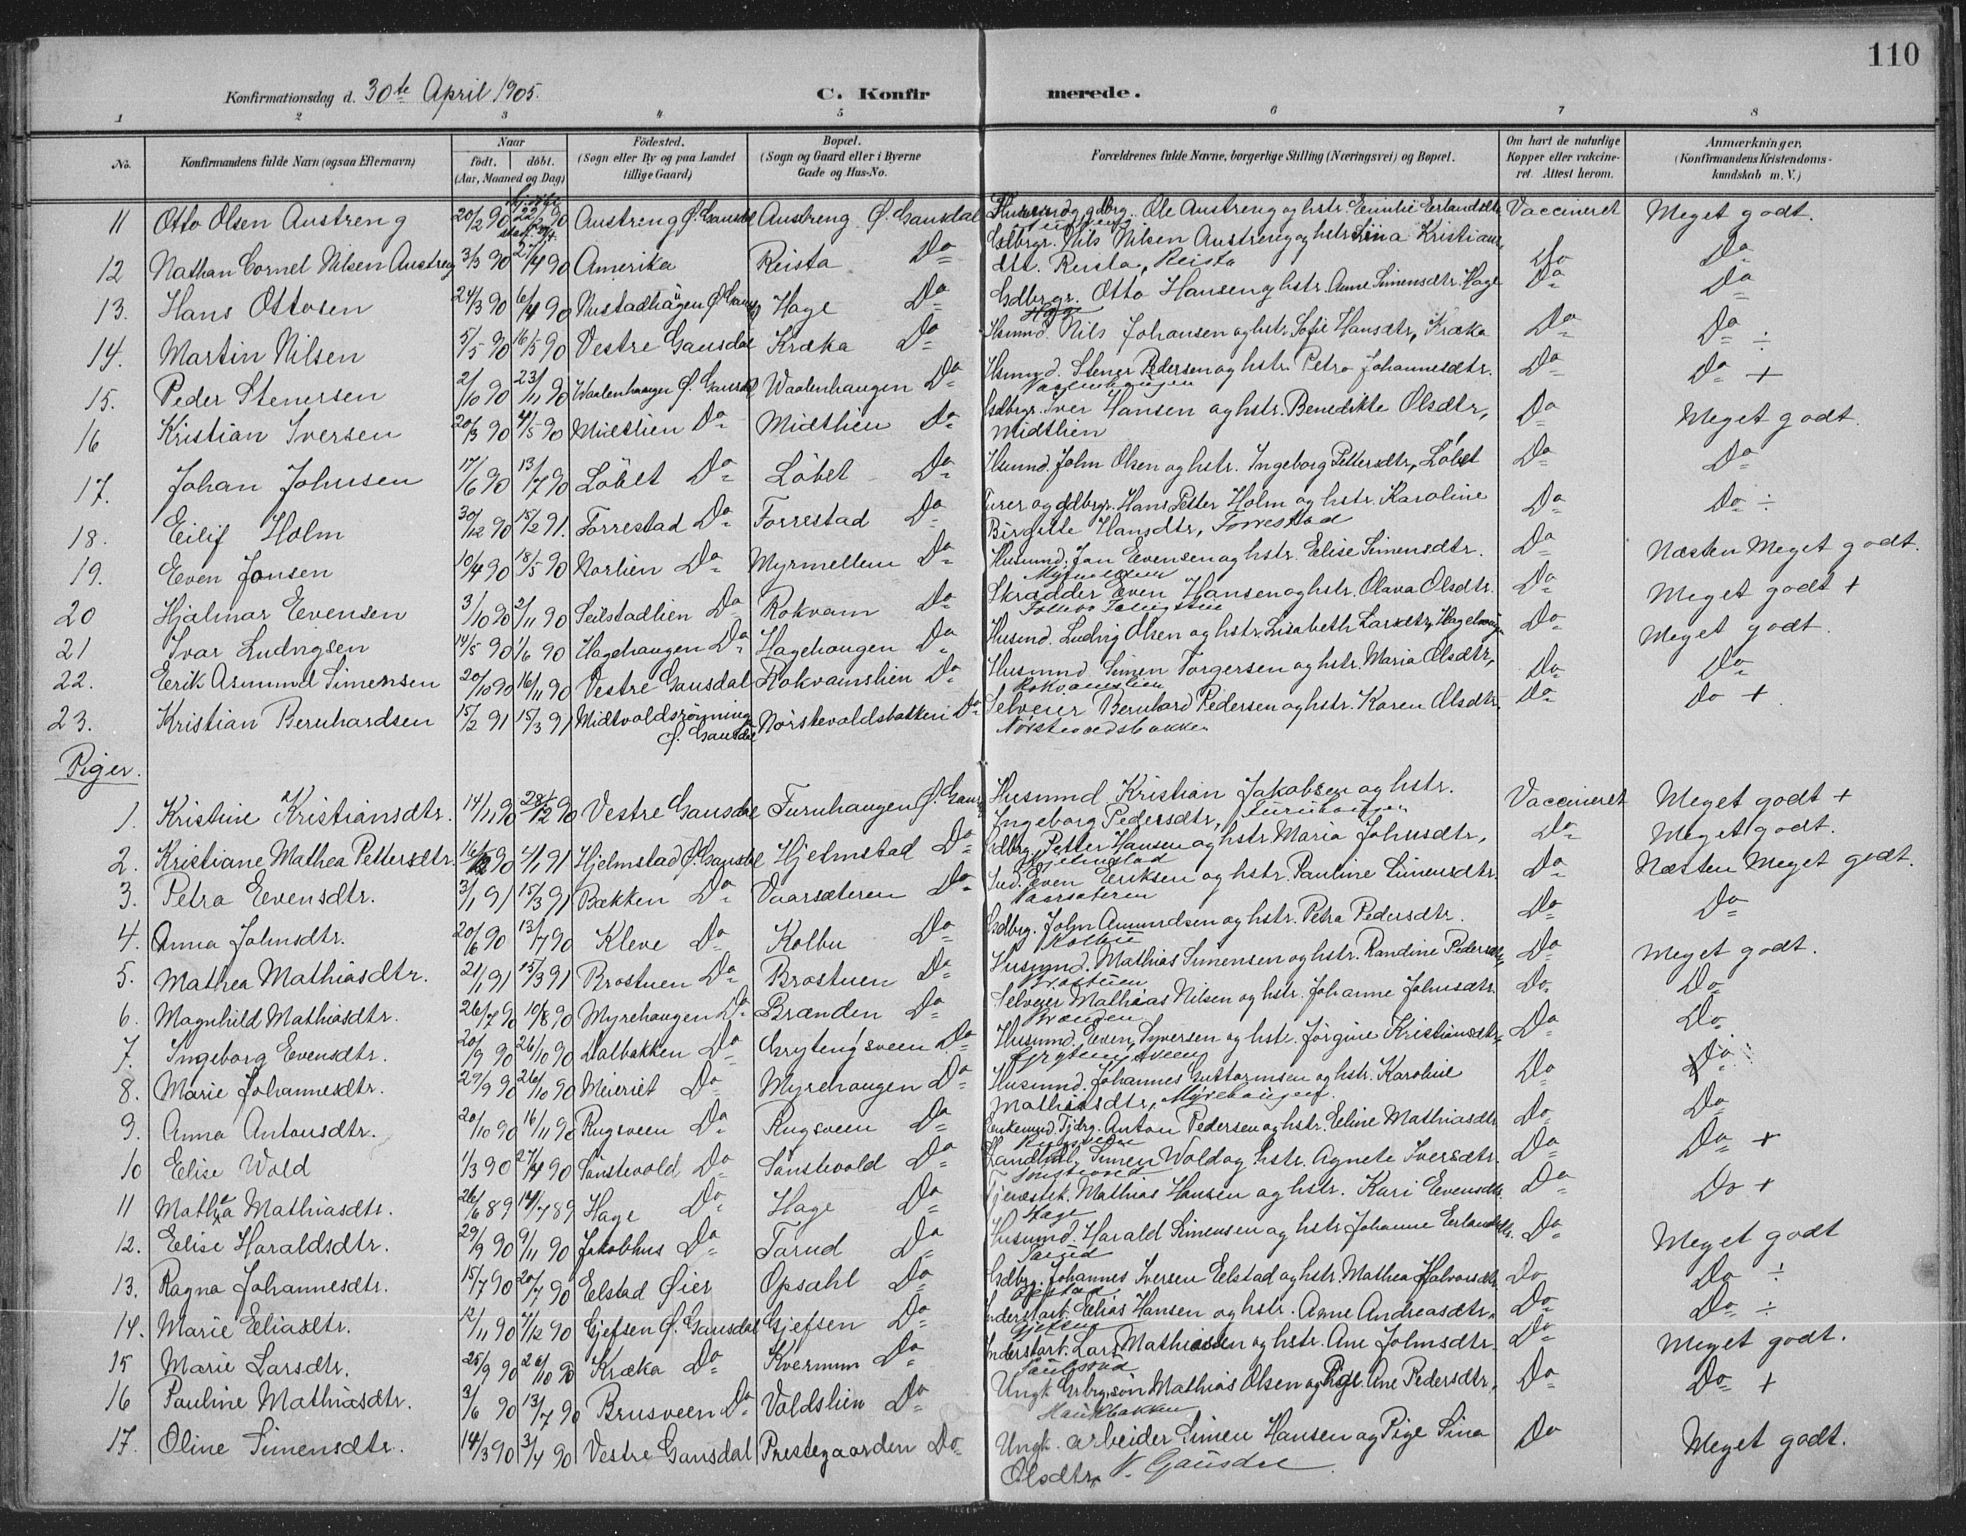 110
Konfirmationsdag d. 30te April 1905. C. Konfirmerede.
1 2 3 4 5 6 7 8
No. Konfirmandens fulde Navn (ogsaa Efternavn) Naar födt. döbt. (Aar, Maaned og Dag) Födested. (Sogn eller By og paa Landet tillige Gaard) Bopæl. (Sogn og Gaard eller i Byerne Gade og Hus-No. Forældrenes fulde Navne, borgerlige Stilling (Næringsvei) og Bopæl. Om havt de naturlige Kopper eller vakcineret. Attest herom. Anmærkninger, (Konfirmandens Kristendomskundskab m. V.)
11 Otto Olsen Austreng 20/2 90 Austreng Ø. Gausdal Austreng Ø. Gausdal Ole Austreng og hstr. Emilie Erlandsdtr. Vaccineret Meget godt.
12 Nathan Cornel Nilsen Austreng 3/3 90 27/4 90 Amerika Reista Do Gdbrgr. Nils Nilsen Austreng og hstr. Lina Kristiansdtr. Reista, Reista Do Do
13. Hans Ottosen 24/3 90 6/4 90 Nustadhaugen Ø Gausd Hage Do Gdbrgr. Otto Hansen og hstr. Anne Simensdtr. Hage Do Do
14. Martin Nilsen 5/5 90 16/5 90 Vestre Gausdal Kræka Do Husmd. Nils Johansen og hstr. Sofie Hansdtr, Kræka Do Do ÷
15. Peder Stenersen 2/10 90 23/11 90 Waalenhaugen Ø. Gausdal Waalenhaugen Do Husmd. Stener Pedersen og hstr. Petra Johannesdtr. Vaalenhaugen Do Do +
16 Kristian Iversen 20/3 90 4/5 90 Midtlien Do Midtlien Do Gdbrgr. Iver Hansen og hstr. Benedikte Olsdtr, Midtlien Do Meget godt.
17. Johan Johnsen 17/6 90 13/7 90 Löbet Do Löbet Do Husmd. John Olsen og hstr. Ingeborg Pettersdtr, Löbet Do Do
18. Eilif Holm 30/12 90 15/2 91. Forrestad Do Forrestad Do og gdbrgr. Hans Petter Holm og hstr. Karoline Birgitte Hansdtr, Forrestad Do Do ÷
19. Even Jonsen 10/4 90 18/5 90 Norlien Do Myrmellem Do Husmd. Jon Evensen og hstr. Elise Simensdtr. Do Næsten Meget godt.
20 Hjalmar Evensen 3/10 90 2/11 90 Seilstadlien Do Rokvam Do Skrædder Even Hansen og hstr. Olava Olsdtr. Do Meget godt +
21 Ivar Ludvigsen 14/5 90 1/6 90 Hagehaugen Do Hagehaugen Do Husmd. Ludvig Olsen og hstr. Lisabeth Larsdtr, Do Meget godt.
22. Erik Asmund Simensen 20/10 90 16/11 90 Vestre Gausdal Rokvamslien Do Husmnd Simen Torgersen og hstr. Maria Olsdtr, Rokvamslien Do Do
23. Kristian Bernhardsen 15/2 91 15/3 91 Midtvoldsrønningen Ø. Gausdal Nörstevoldsbakken Do Selveier Bernhard Pedersen og hstr. Karen Olsdtr. Nörstevoldsbakken Do Do +
Piger.
1. Kristine Kristiansdtr. 14/11 90 28/12 90 Vestre Gausdal Furuhaugen Ø. Gausd Husmnd Kristian Jakobsen og hstr. Ingeborg Pedersdtr, Furuhaugen Vaccineret Meget godt +
2. Kristiane Mathea Pettersdtr. 16/12 90 4/1 91 Hjelmstad Ø. Gausdal Hjelmstad Do Gdbrg. Petter Hansen og hstr. Maria Johnsdtr, Hjelmstad Do Meget godt.
3. Petra Evensdtr. 3/1 91 15/3 91 Bakken Do Vaarsæteren Do Ind. Even Eriksen og hstr. Pauline Simensdtr. Vaarsæteren Do Næsten Meget godt.
4. Anna Johnsdtr. 20/6 90 13/7 90 Kleve Do Kolbu Do Gdbrg. John Amundsen og hstr. Petra Pedersdtr. Kolbu Do Do
5. Mathea Mathiasdtr. 21/1 91 15/3 91 Brostuen Do Brostuen Do Husmnd. Mathias Simensen og hstr. Randine Pedersdtr, Brostuen Do Meget godt.
6. Magnhild Mathiasdtr. 26/7 90 10/8 90 Myrehaugen Do Brænden Do Selveier Mathias Nilsen og hstr. Johanne Johnsdtr. Brænden Do Do
7. Ingeborg Evensdtr. 20/9 90 26/10 90 Dalbakken Do Grytingsveen Do Husmnd. Even Syversen og hstr. Jørgine Kristiansdtr, Grytingsveen Do Do
8. Marie Johannesdtr. 29/9 90 26/10 90 Meieriet Do Myrehaugen Do Husmnd. Johannes Guttormsen og hstr. Karoline Mathiasdtr, Myrehaugen. Do Do
9. Anna Antonsdtr. 20/10 90 16/11 90 Rugsveen Do Rugsveen Do Anton Pedersen og hstr. Eline Mathiasdtr Rugsveen Do Do
10 Elise Wold 1/3 90 27/4 90 Sönstevold Do Sönstevold Do Landhdl. Simen Wold og hstr. Agnete Iversdtr. Sönstevold Do Do +
11 Mathea Mathiasdtr. 26/6 89 14/7 89 Hage Do Hage Do Mathias Hansen og hstr. Kari Evensdtr. Hage Do Do +
12. Elise Haraldsdtr. 29/9 90 9/11 90 Jakobhus Do Tarud Do Husmnd. Harald Simensen og hstr. Johanne Erlandsdtr. Tarud Do Meget godt
13. Ragna Johannesdtr. 15/7 90 20/7 90 Elstad Øier Opsahl Do Gdbrg. Johannes Iversen Elstad og hstr. Mathea Halvorsdtr. Do Do ÷
14. Marie Eliasdtr. 12/11 90 7/12 90 Gjefsen Ø. Gausdal Gjefsen Do Elias Hansen og hstr. Anne Andreasdtr. Gjefsen Do Do ÷
15 Marie Larsdtr. 25/9 90 26/10 90 Kræka Do Kvernum Do Lars Mathiassen og hstr. Ane Johnsdtr. Do Meget godt.
16 Pauline Mathiasdtr. 3/6 90 13/7 90 Brusveen Do Voldslien Do Ungk. Grbrg.søn Mathias Olsen og Pige Ane Pedersdtr, Do Do +
17. Oline Simensdtr. 14/3 90 3/4 90 Vestre Gausdal Prestegaarden Do Ungk. arbeider Simen Hansen og Pige Sina Olsdtr, V. Gausdal Do Meget godt.